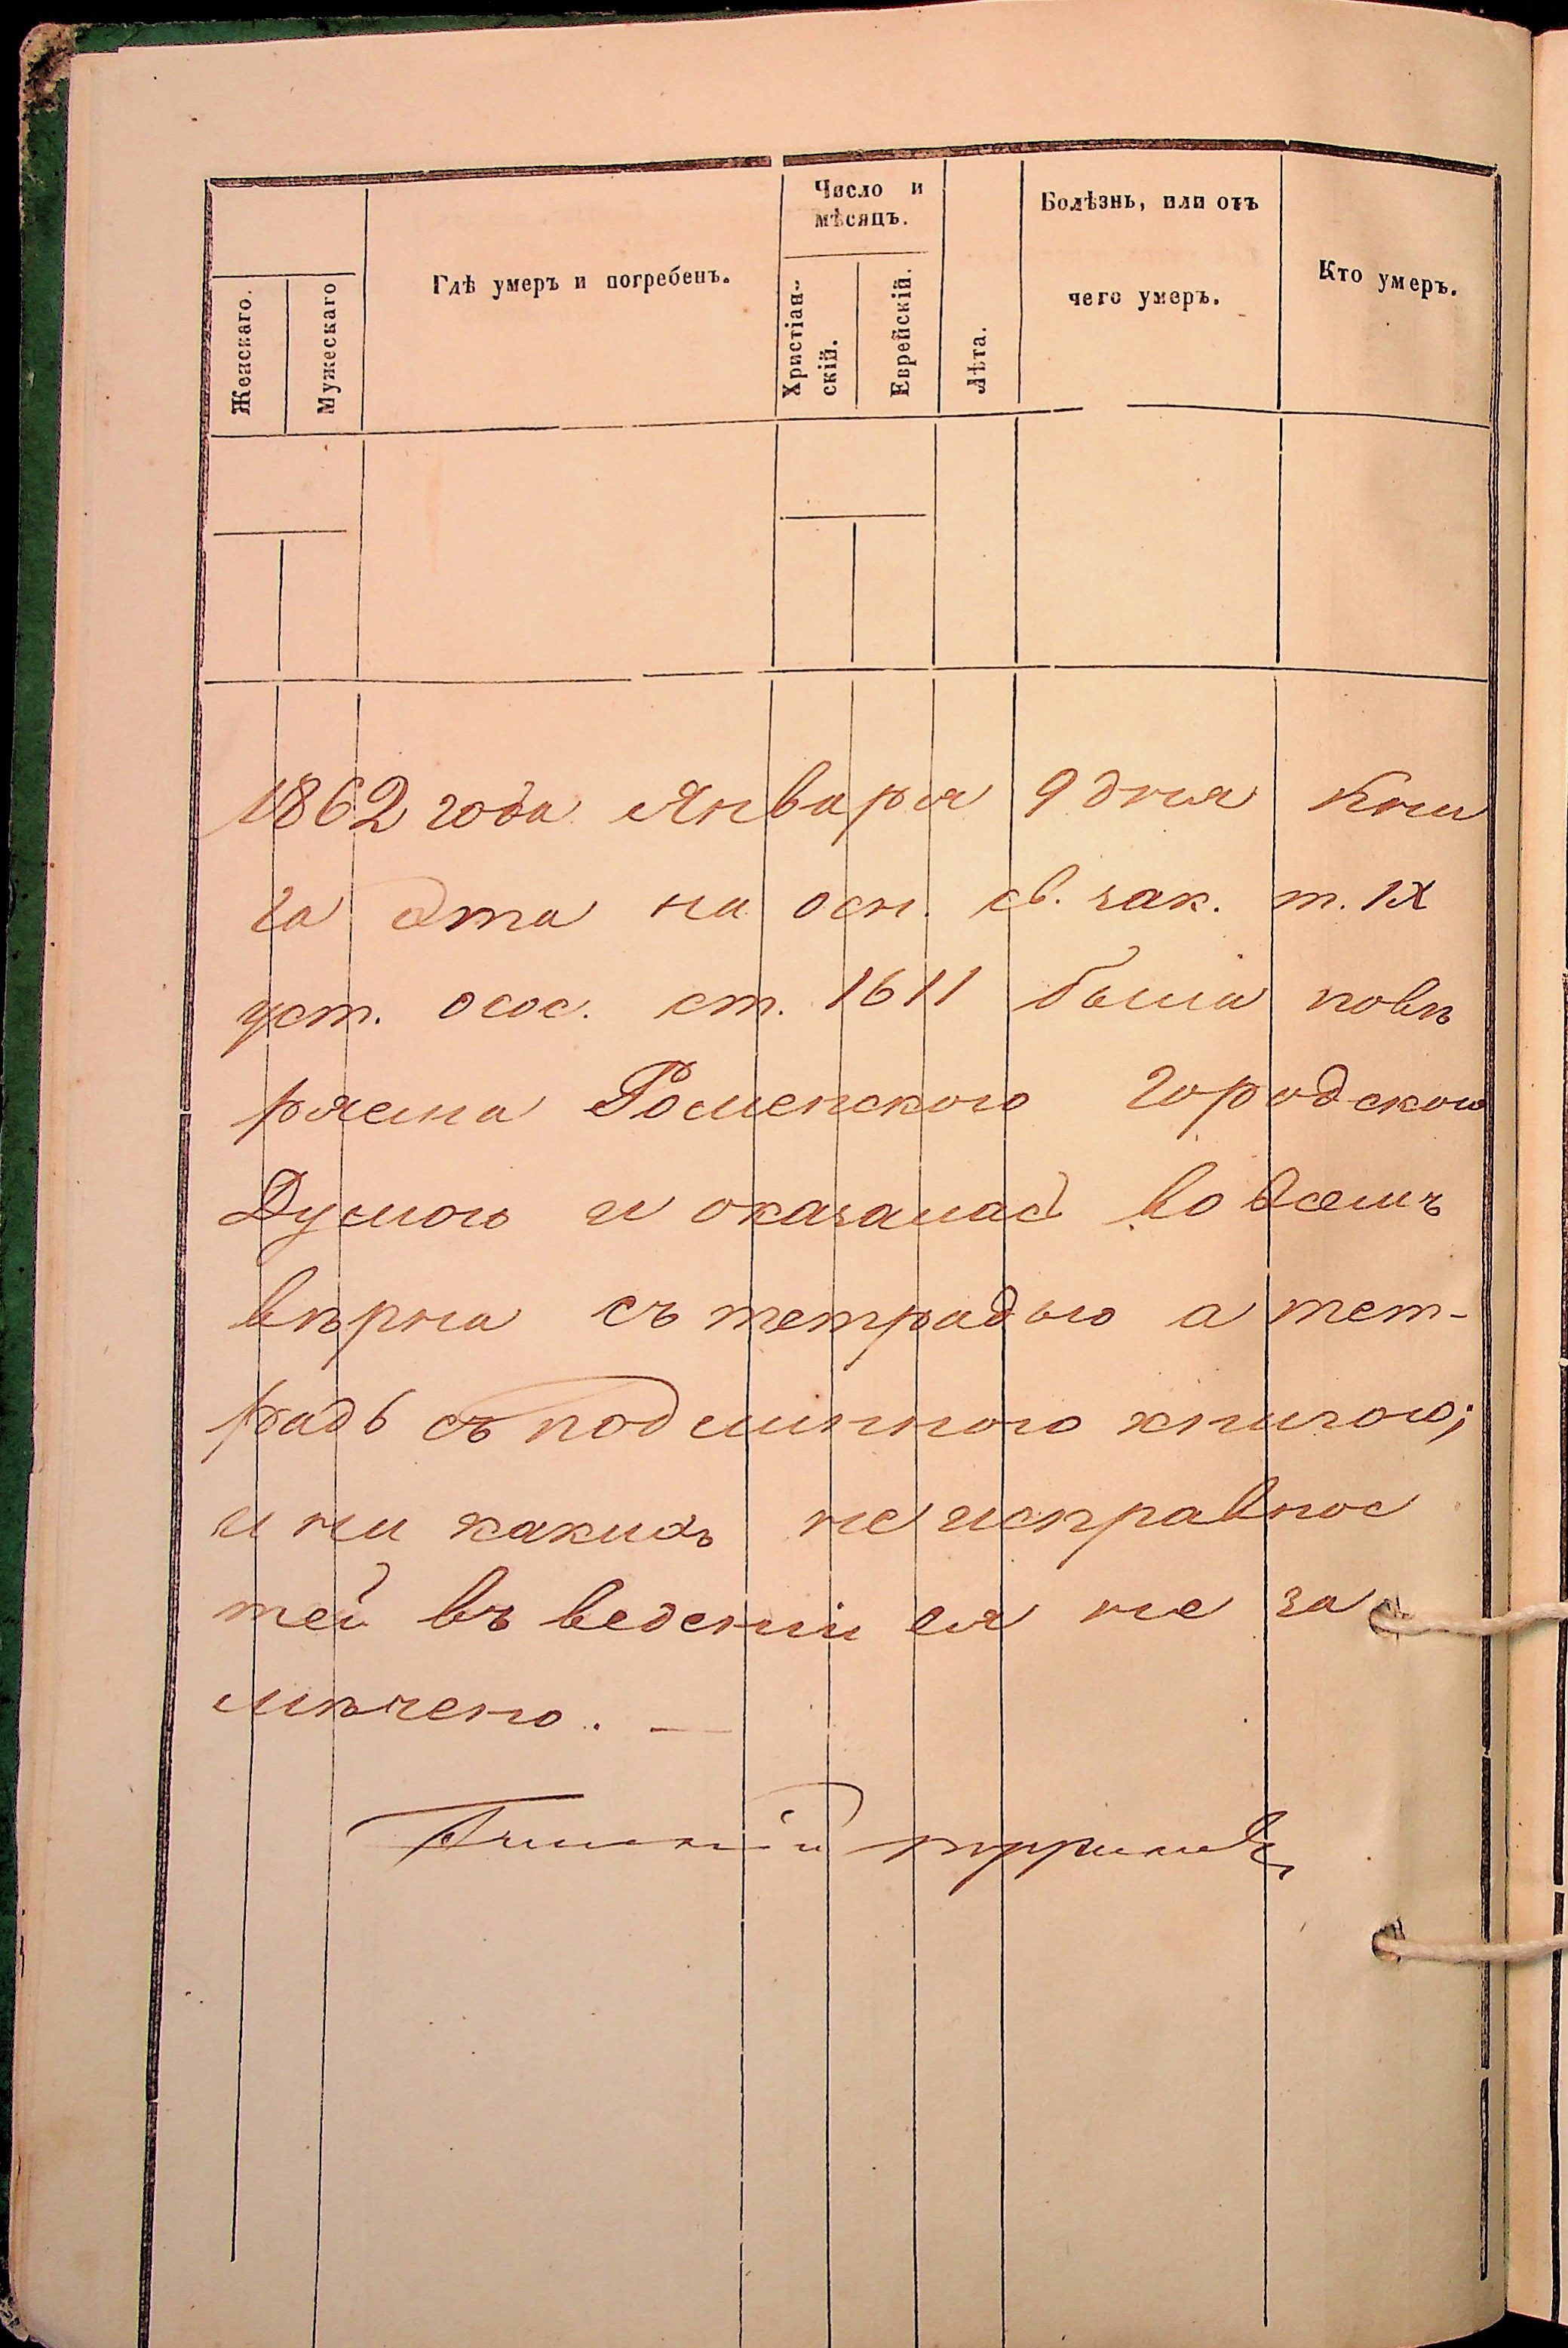 Женскаго.
Мужескаго
Гдѣ умеръ и погребенъ.
Число и
мѣсяцъ.
Христіан-
скій.
Еврейскій.
Лѣта.
Болѣзнь, или отъ
чего умеръ.
Кто умеръ.
1862 года Января 9 дня Кни
га эта на осн. св. зак. т. IX
уст. осос. ст. 1611 была повѣ
ряема Роменского городскою
Думою и оказалась во всемъ
вѣрна съ тетрадью а тет-
радь съ подлинною книгою;
и ни какихъ не исправнос
тей въ ведении ея не за
мѣчено. —